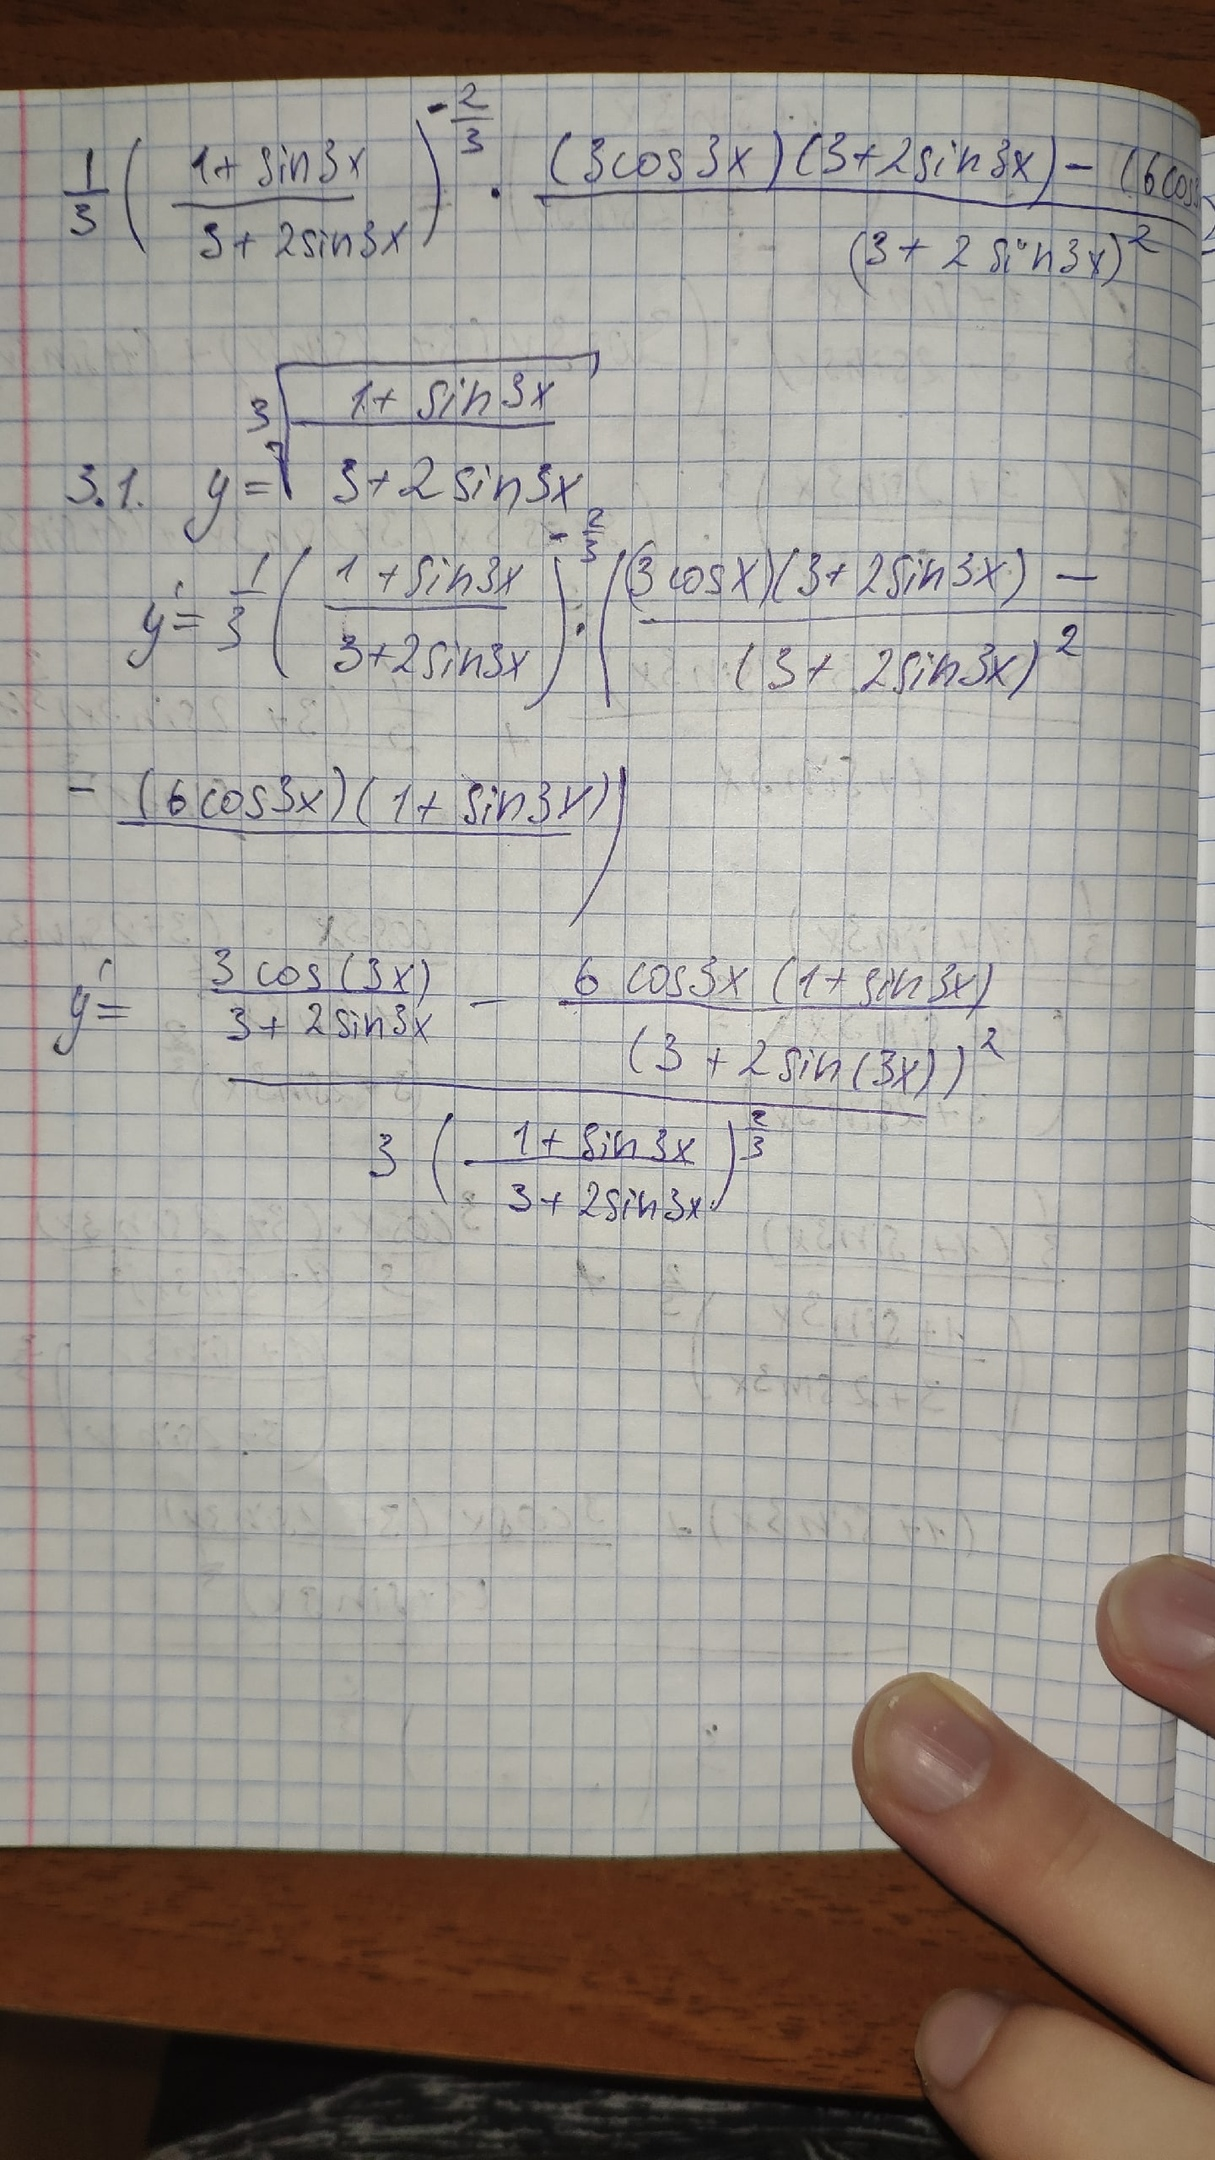 1/3 ( (1+sin3x)/(3+2sin3x) )^(-2/3) · ((3cos3x)(3+2sin3x) - (6cos / (3+2sin3x)^2
3.1. y = ∛((1+sin3x)/(3+2sin3x))
y' = 1/3 ( (1+sin3x)/(3+2sin3x) )^(-2/3) · ( ((3cosx)(3+2sin3x) - / (3+2sin3x)^2
- (6cos3x)(1+sin3x) )
y' = ( 3cos(3x)/(3+2sin3x) - 6cos3x(1+sin3x)/(3+2sin(3x))^2 ) / ( 3 ( (1+sin3x)/(3+2sin3x) )^(2/3) )